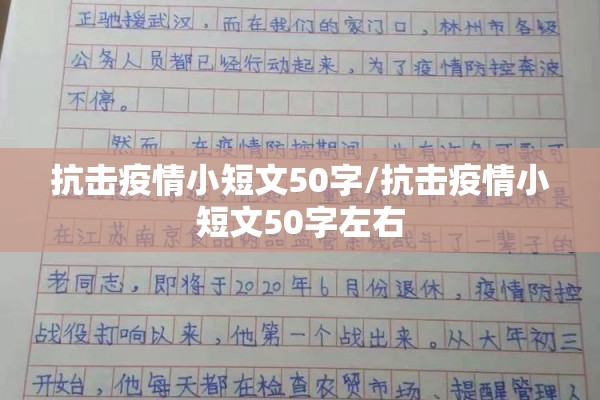 正驰援武汉，而在我们的家门口，林州市各级
公务人员都已经行动起来，为了疫情防控奔波
不停。
然而，在疫情防控期间，也有许多可歌可
抗击疫情小短文50字/抗击疫情小
短文50字左右
在江苏南京食品药品监管条线战斗了一辈子的
老同志，即将于2020年6月份退休，疫情防控
战役打响以来，他第一个战出来。从大年初三
开始，他每天都在检查农贸市场、提醒管理人